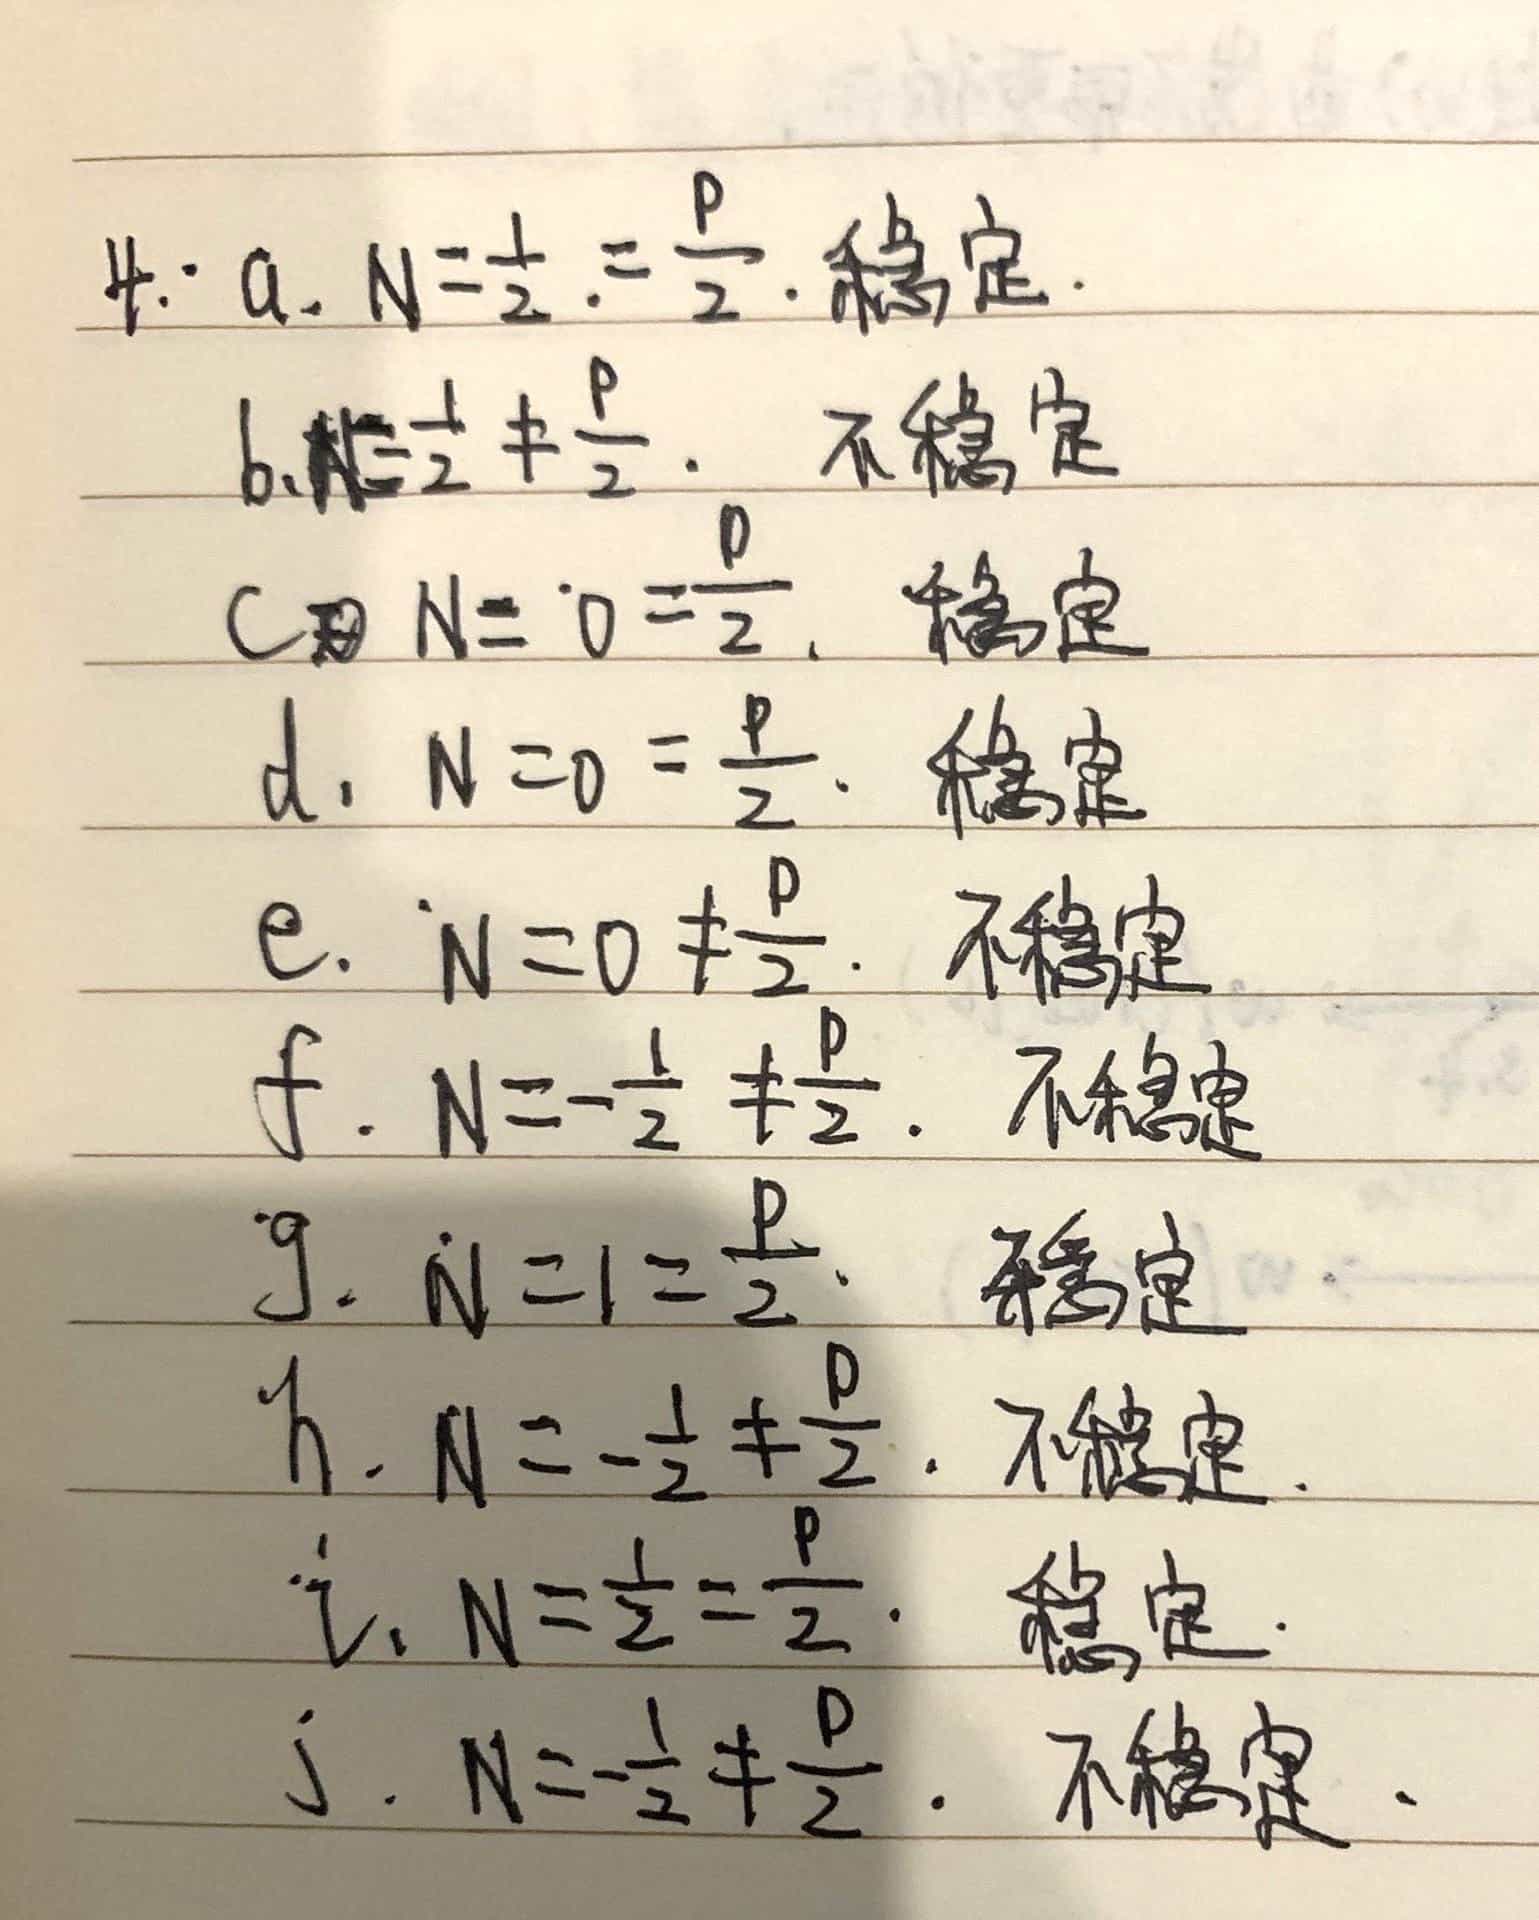 4. a. N=1/2=P/2. 稳定.
b. N=1/2≠P/2. 不稳定
c N=0=P/2. 稳定
d. N=0=P/2. 稳定
e. N=0≠P/2. 不稳定
f. N=-1/2≠P/2. 不稳定
g. N=1=P/2. 稳定
h. N=-1/2≠P/2. 不稳定.
i. N=1/2=P/2. 稳定.
j. N=-1/2≠P/2. 不稳定.